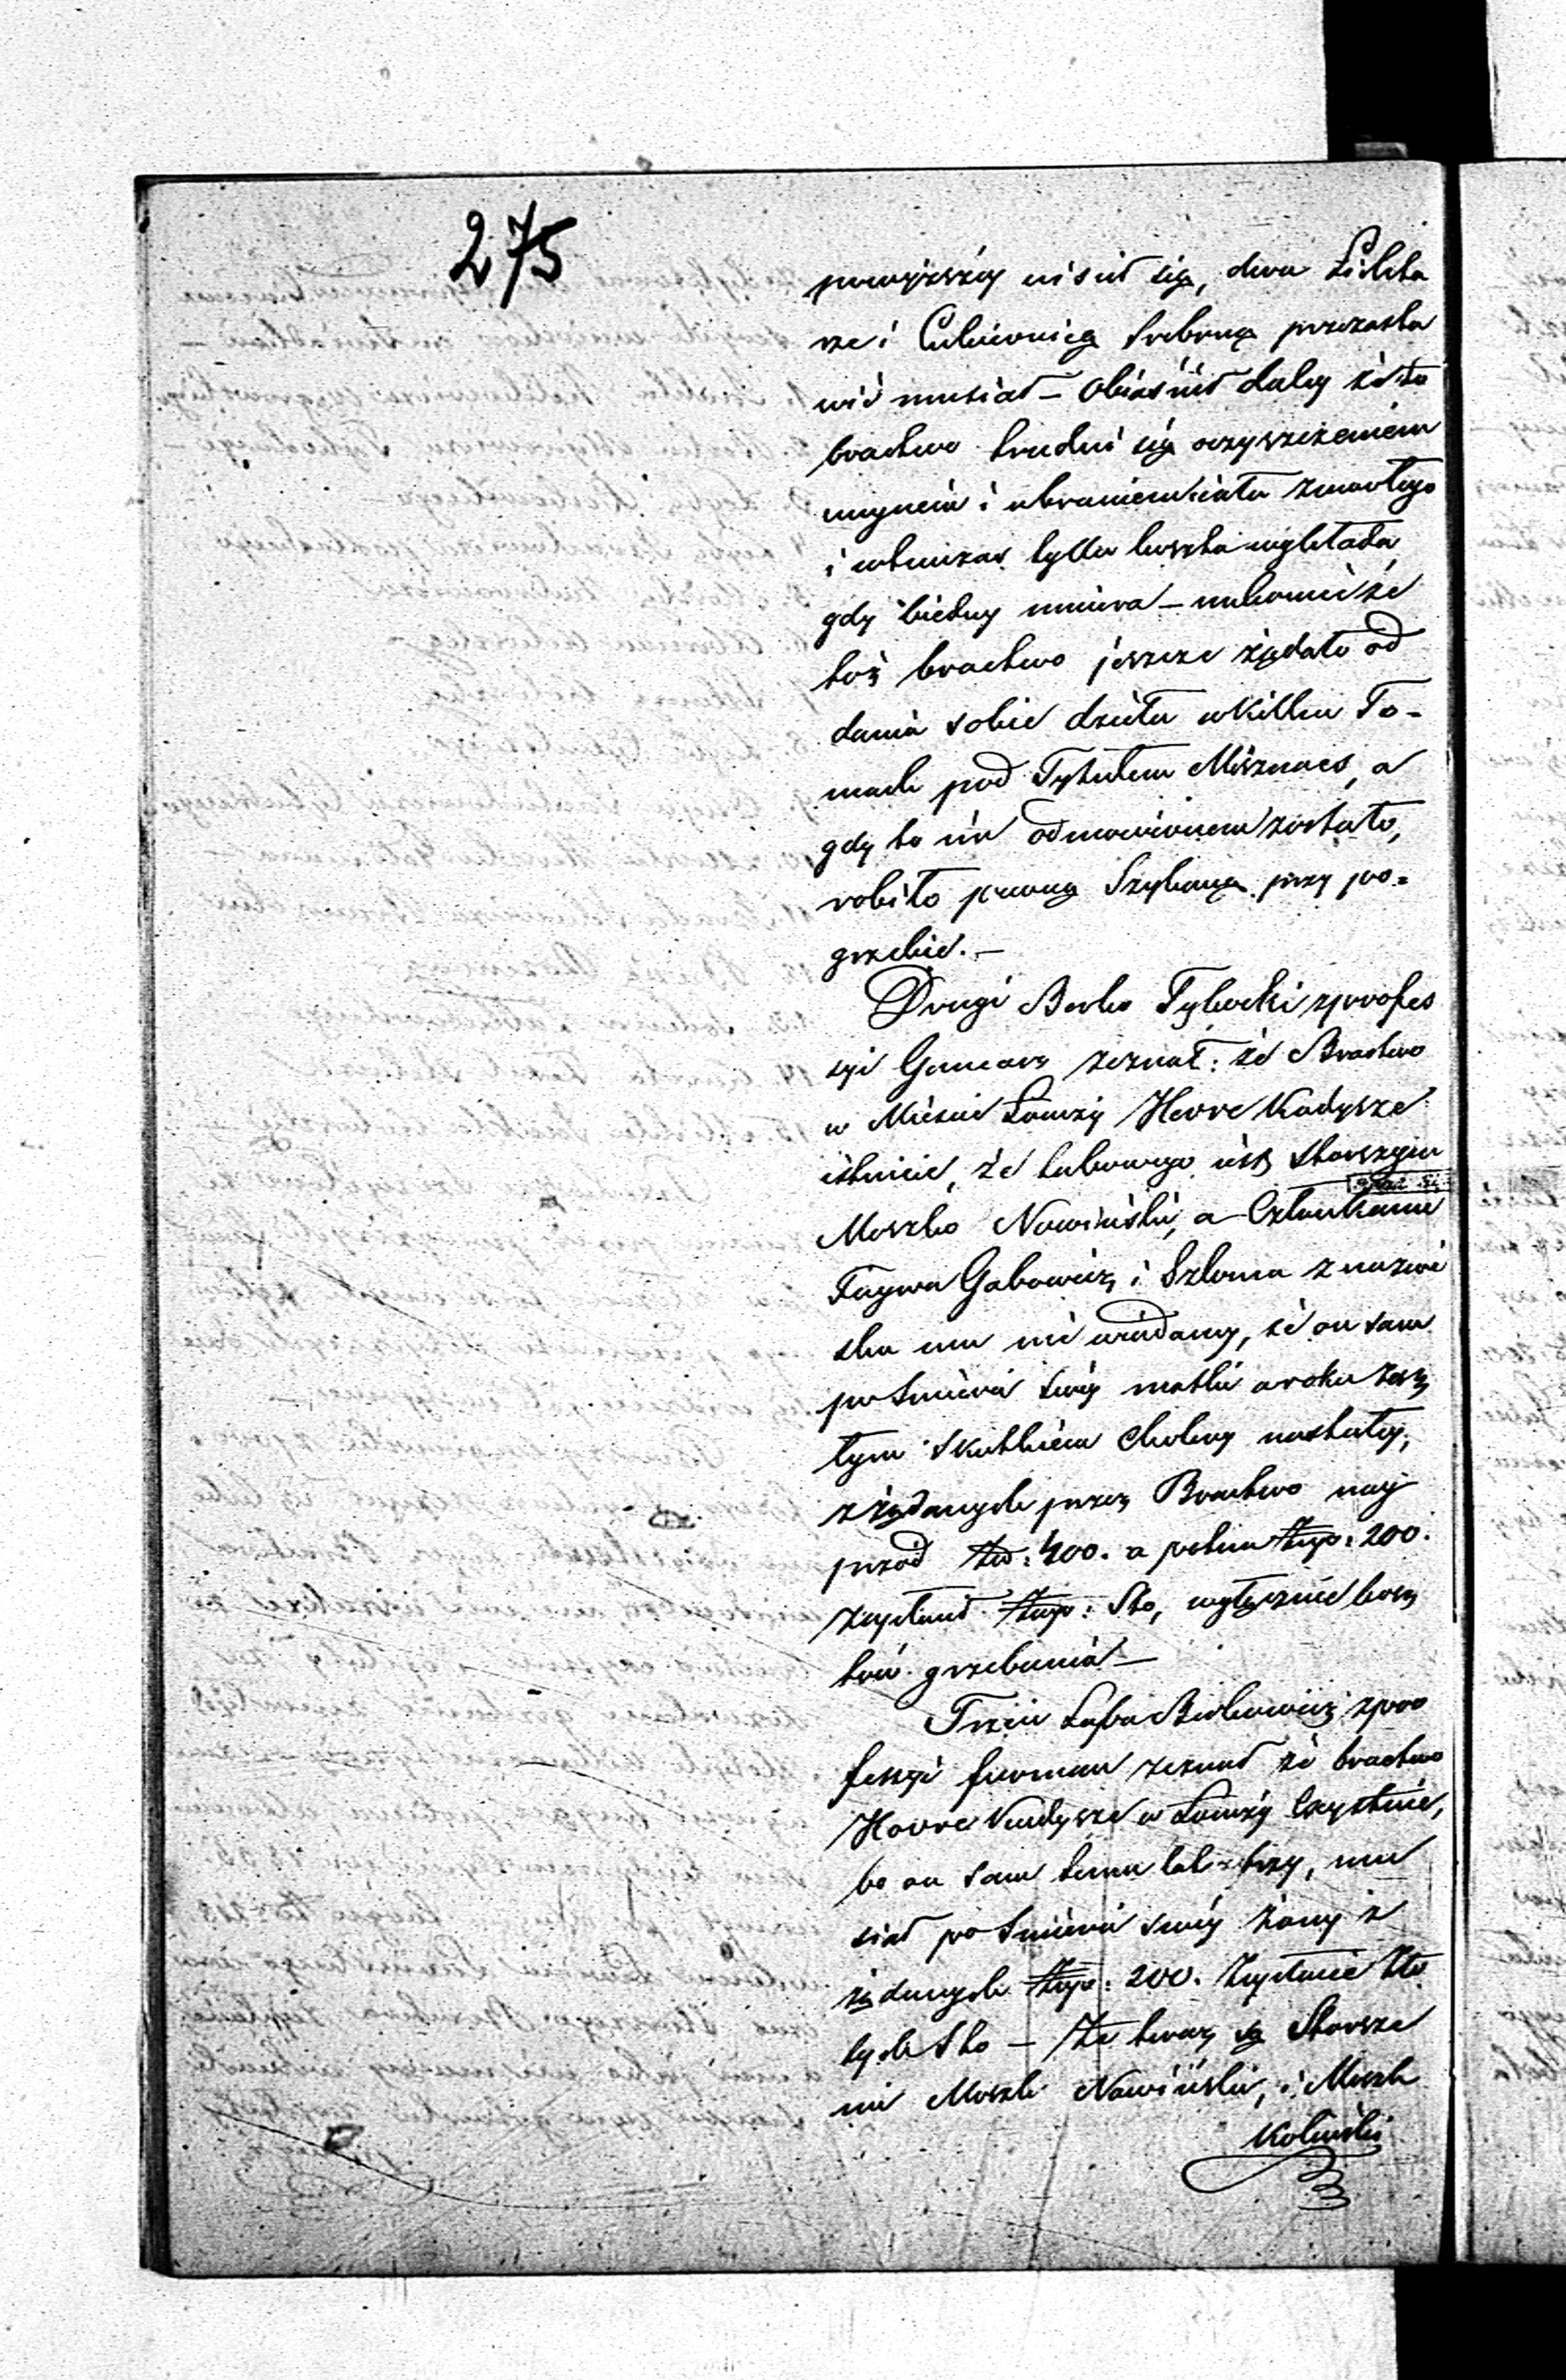 275
powyższéy uiścił się, dwa Lichta
rze i Cukiernicę srebrną przezasta
wić musiał — Obiaśnił daley że to
bractwo trudni się oczyszczeniem
umyciem i ubraniem ciała zmarłego
i wtenczas tylko koszta wykłada
gdy biedny umiera — nakoniec że
toż bractwo jeszcze żądało od
dania sobie dzieła w kilku To-
mach pod Tytułem Misznaes, a
gdy to im odmówionem zostało,
robiło pewną Szykanę przy po=
grzebie. —
Drugi Berko Tykocki z profes
syi Garncarz zeznał: że Bractwo
w Mieście Łomży Hevre Kadysze
istnieie, że takowego iest Starszym
Moszko Nowiński, a Członkami
Faywa Gabowicz i Szloma z nazwi
ska mu nie wiadomy, że on sam
po śmierci swéy matki w roku zesz
łym skutkiem Cholery nastałéy,
z żądanych przez Bractwo nay
przód złp: 400. a potem złp: 200.
zapłacił złp: Sto, wyłącznie kosz
tów grzebania —
Trzeci Leyba Berkowicz z pro
fessyi furman zeznał że bractwo
Hevre Kadysze w Łomży Exystuie,
bo on sam temu lat trzy, mu
siał po śmierci swéy żony z
żądanych złp: 200. Zapłacić Zło
tych Sto — Że teraz są Starsze
mi Moszk Nowiński, i Moszk
Koliński